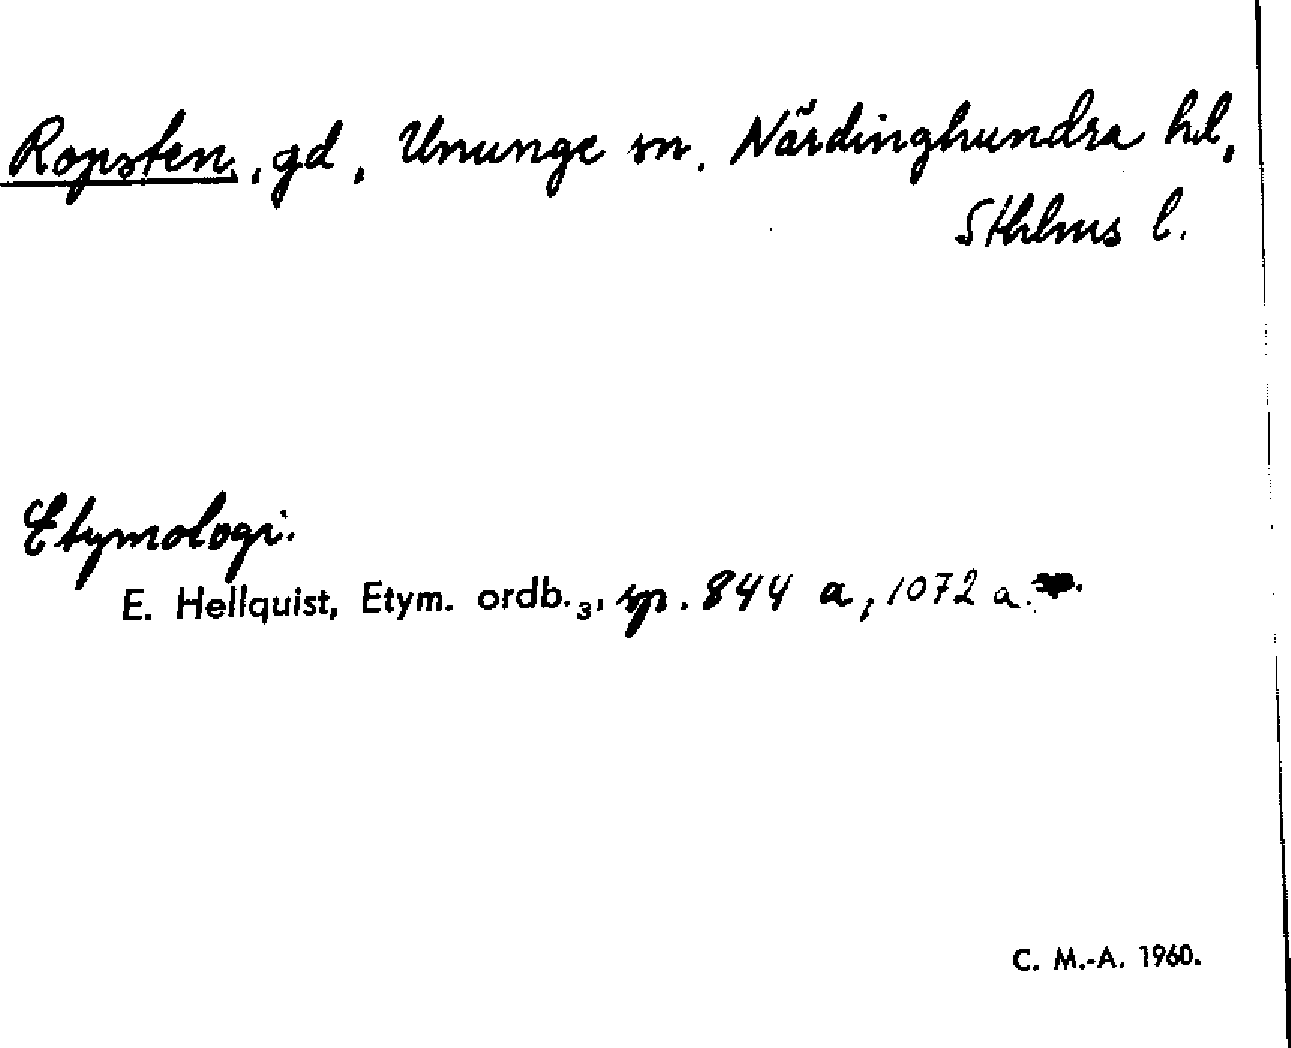 Ropsten, gd, Ununge sn, Närdinghundra hd,
Sthlms l.
Etymologi.
E. Hellquist, Etym. ordb.₃, sp. 844 a, 1072 a.
C. M.-A. 1960.